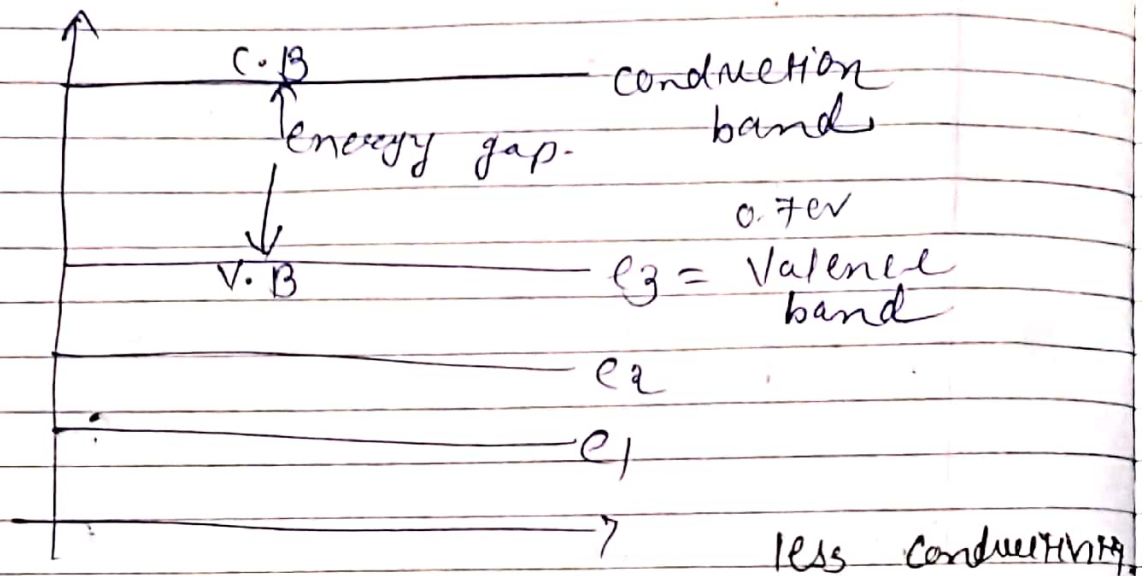 C.B
conduction
band
energy gap.
0.7ev
V.B
e3 = Valence
band
e2
e1
less conductivity.